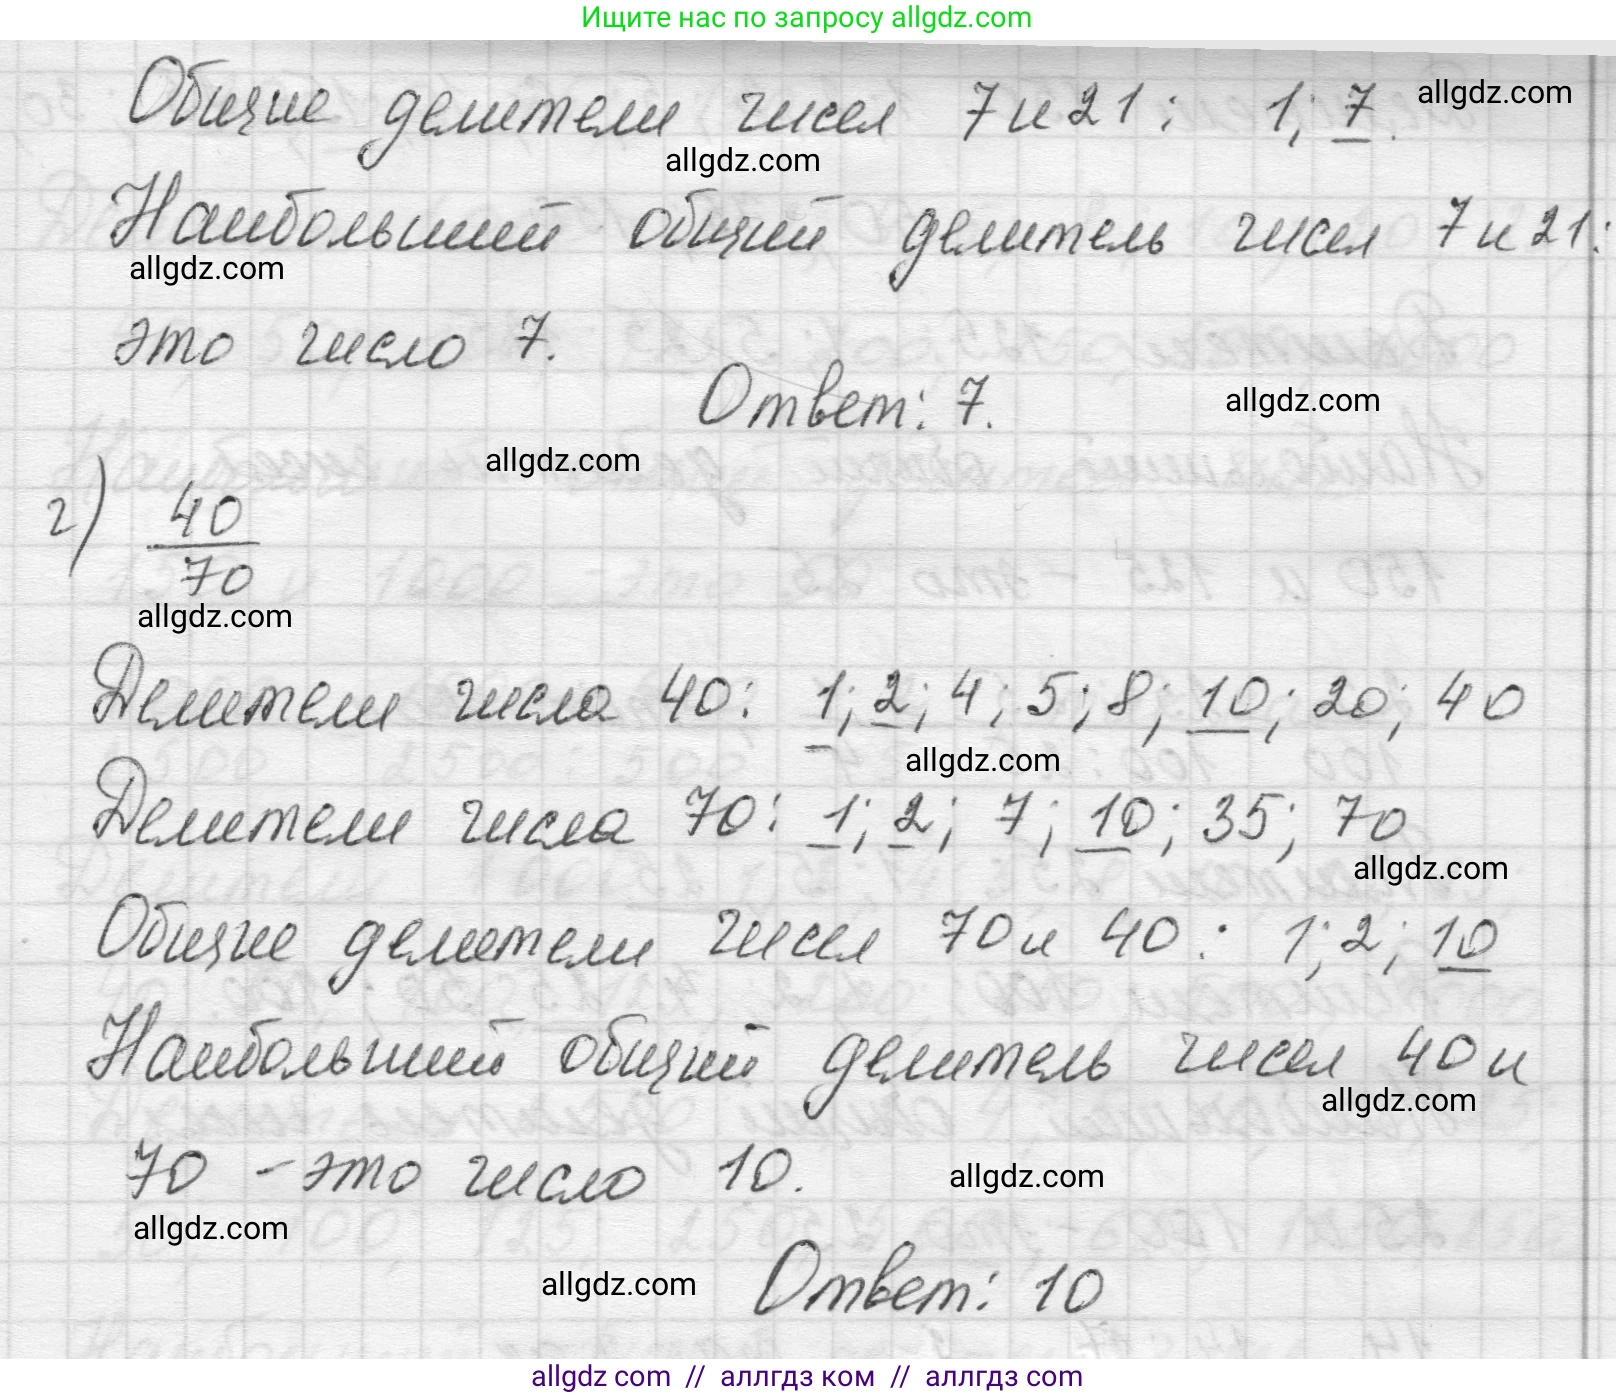 Ищите нас по запросу allgdz.com
Общие делители чисел 7 и 21: 1; 7. allgdz.com
allgdz.com
Наибольший общий делитель чисел 7 и 21:
allgdz.com
это число 7.
Ответ: 7. allgdz.com
allgdz.com
г) 40/70
allgdz.com
Делители числа 40: 1; 2; 4; 5; 8; 10; 20; 40
allgdz.com
Делители числа 70: 1; 2; 7; 10; 35; 70
allgdz.com
Общие делители чисел 70 и 40: 1; 2; 10
Наибольший общий делитель чисел 40 и
allgdz.com
70 - это число 10. allgdz.com
allgdz.com
allgdz.com
Ответ: 10
allgdz com // аллгдз ком // аллгдз.com